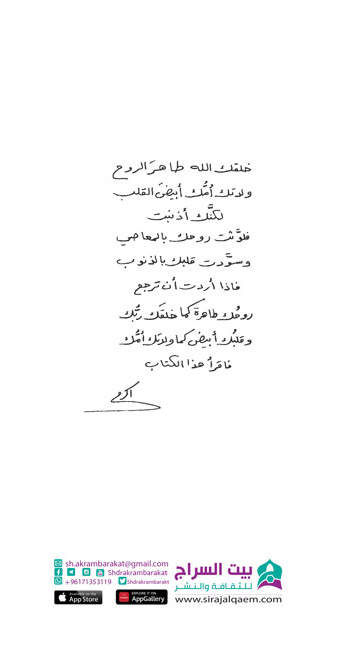 خلقك الله طاهرَ الروح
ولدتك أمُّك أبيضَ القلب
لكنَّك أذنبت
فلوَّثت روحك بالمعاصي
وسوَّدت قلبك بالذنوب
فاذا أردت أن ترجع
روحُك طاهرة كما خلقَك ربُّك
وقلبُك أبيض كما ولدتك أمُّك
فاقرأ هذا الكتاب
اكرم
sh.akrambarakat@gmail.com
Shdrakrambarakat
+96171353119 Shdrakrambarakt
Available on the App Store
EXPLORE IT ON AppGallery
بيت السراج
للثقافة والنشر
www.sirajalqaem.com